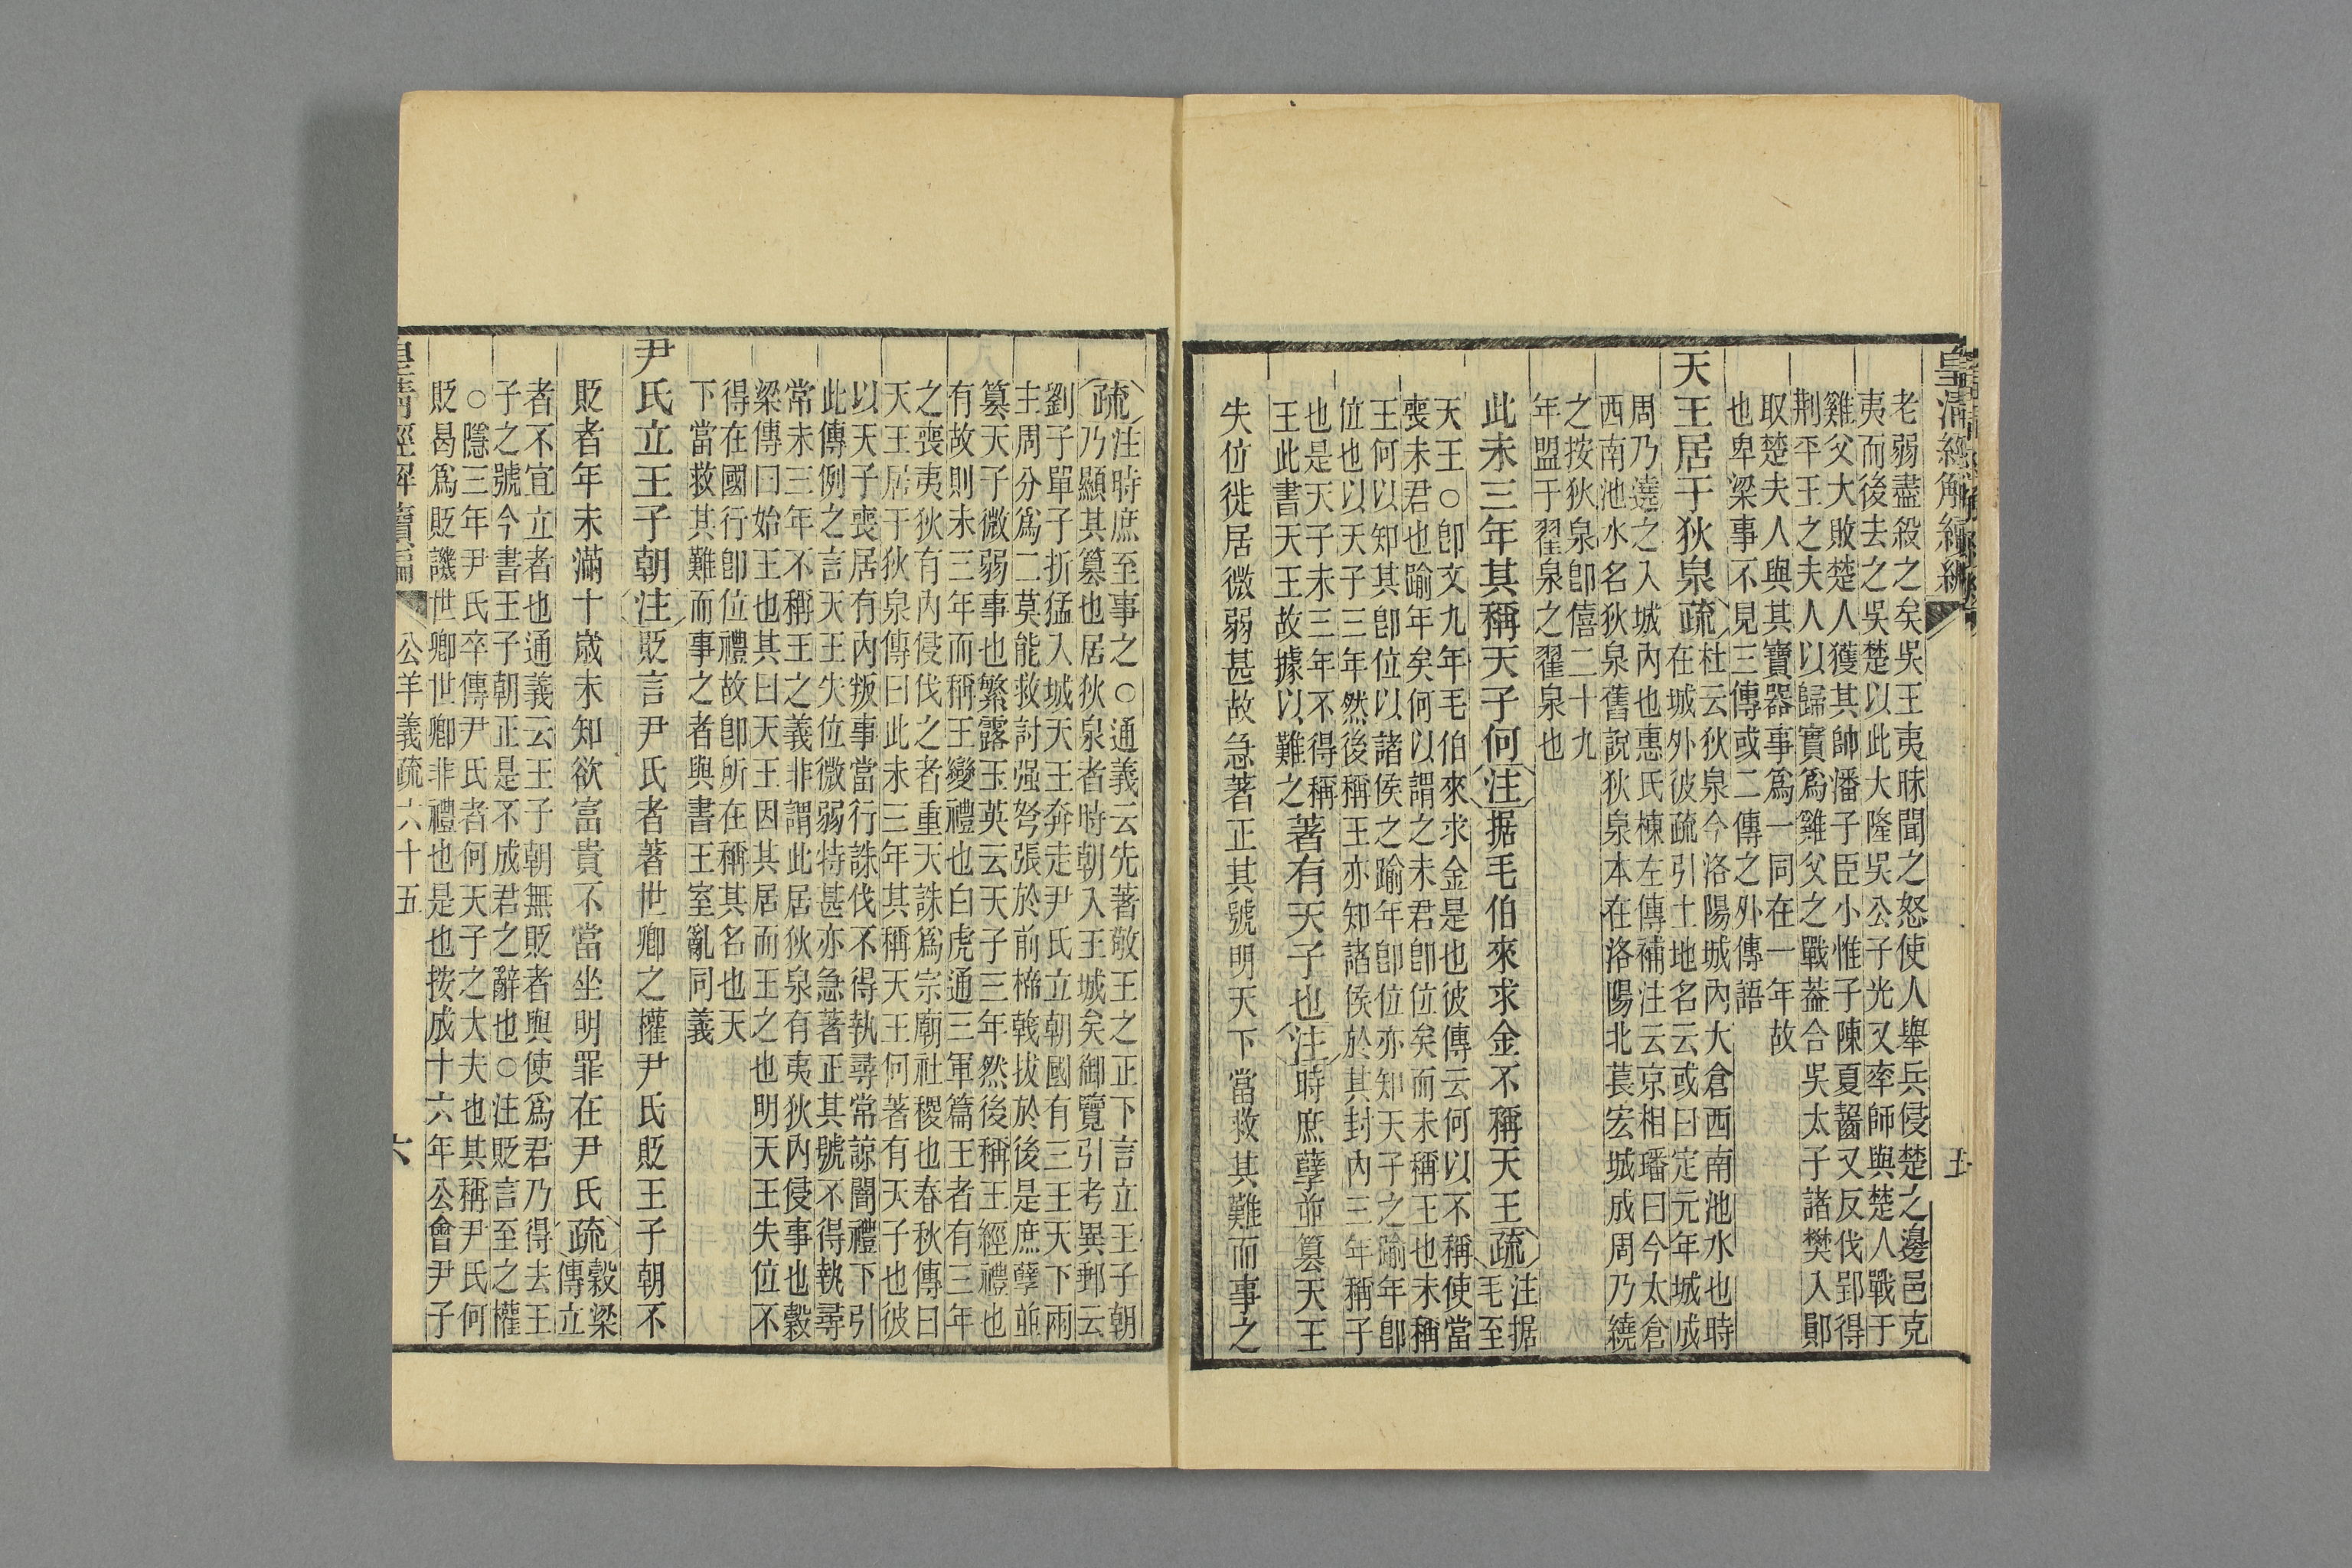 皇清經解續編
五
老弱盡殺之矣吳王夷昧聞之怒使人舉兵侵楚之邊邑克
夷而後去之吳楚以此大隆吳公子光又率師與楚人戰于
雞父大敗楚人獲其帥潘子臣小惟子陳夏齧又反伐郢得
荆平王之夫人以歸實爲雞父之戰葢合吳太子諸樊入鄖
取楚夫人與其寶器事爲一同在一年故
也卑梁事不見三傳或二傳之外傳語
天王居于狄泉疏
杜云狄泉今洛陽城內大倉西南池水也時
在城外彼疏引土地名云或曰定元年城成
周乃遶之入城內也惠氏棟左傳補注云京相璠曰今太倉
西南池水名狄泉舊說狄泉本在洛陽北萇宏城成周乃繞
之按狄泉卽僖二十九
年盟于翟泉之翟泉也
此未三年其稱天子何注据毛伯來求金不稱天王疏
注据
毛至
天王○卽文九年毛伯來求金是也彼傳云何以不稱使當
喪未君也踰年矣何以謂之未君卽位矣而未稱王也未稱
王何以知其卽位以諸侯之踰年卽位亦知天子之踰年卽
位也以天子三年然後稱王亦知諸侯於其封內三年稱子
也是天子未三年不得稱
王此書天王故據以難之
著有天子也注時庶孽並篡天王
失位徙居微弱甚故急著正其號明天下當救其難而事之
疏
注時庶至事之○通義云先著敬王之正下言立王子朝
乃顯其篡也居狄泉者時朝入王城矣御覽引考異郵云
劉子單子折猛入城天王奔走尹氏立朝國有三王天下兩
主周分爲二莫能救討强弩張於前楴戟拔於後是庶孽並
篡天子微弱事也繁露玉英云天子三年然後稱王經禮也
有故則未三年而稱王變禮也白虎通三軍篇王者有三年
之喪夷狄有內侵伐之者重天誅爲宗廟社稷也春秋傳曰
天王居于狄泉傳曰此未三年其稱天王何著有天子也彼
以天子喪居有內叛事當行誅伐不得執尋常諒闇禮下引
此傳例之言天王失位微弱特甚亦急著正其號不得執尋
常未三年不稱王之義非謂此居狄泉有夷狄內侵事也穀
梁傳曰始王也其曰天王因其居而王之也明天王失位不
得在國行卽位禮故卽所在稱其名也天
下當救其難而事之者與書王室亂同義
尹氏立王子朝注貶言尹氏者著世卿之權尹氏貶王子朝不
貶者年未滿十歲未知欲富貴不當坐明罪在尹氏疏
穀梁
傳立
者不宜立者也通義云王子朝無貶者與使爲君乃得去王
子之號今書王子朝正是不成君之辭也○注貶言至之權
○隱三年尹氏卒傳尹氏者何天子之大夫也其稱尹氏何
貶曷爲貶譏世卿世卿非禮也是也按成十六年公會尹子
皇清經解續編
公羊義疏六十五
六